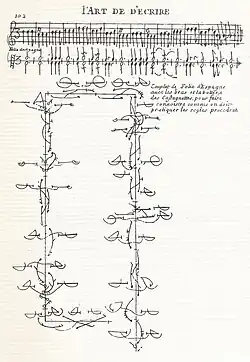 202
l'ART DE D'ECRIRE
Folie d'Espagne
Couplet de Folie d'Espagne
avec les bras et la batterie
des Castagnettes, pour faire
connoistre comme on doit
pratiquer les regles precedentes